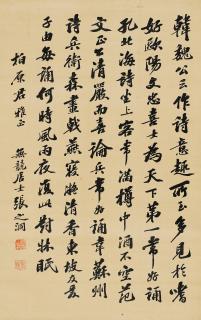 韓魏公作詩意趣所至多見於嗜
好歐陽文忠喜士為天下第一常好誦
孔北海詩坐上客常滿樽中酒不空范
文正公清嚴而喜論兵常好誦韋蘇州
詩兵衛森畫戟燕寢凝清香東坡友愛
子由每誦何時風雨夜復此對牀眠
柏原君雅正
無競居士張之洞